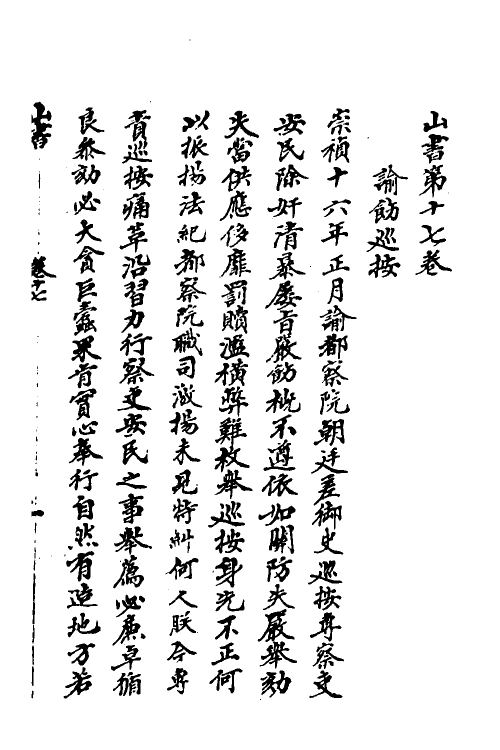 山書第十七卷
諭飭巡按
崇禎十六年正月諭都察院朝廷差御史巡按專察吏
安民除奸清暴屡旨嚴飭概不遵依如關防失嚴舉劾
失當供應侈靡罰贖濫橫弊難枚舉巡按身先不正何
以振揚法紀都察院職司激揚未見特糾何人朕今專
責巡按痛革沿習力行察吏安民之事舉薦必廉卓循
良参劾必大貪巨蠹果肯實心奉行自然有造地方若
山書
卷十七
一